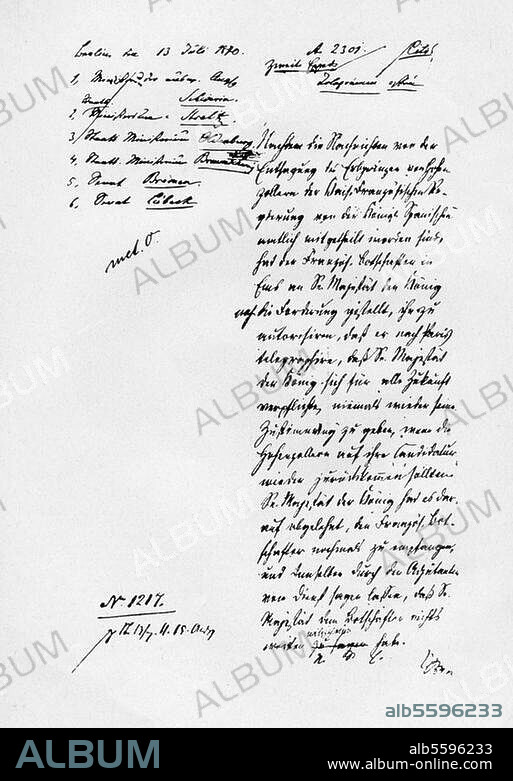 Berlin den 13 Juli 1870.
A. 2301.
Cito!
1, Ministerium
Telegramm
Schwerin.
2, Ministerium - Strelitz
3, Staats Ministerium Oldenburg
4, Staats Ministerium Braunschweig
5, Senat Bremen
6, Senat Lübeck
Nachdem die Nachrichten von der
Entsagung des Erbprinzen von Hohen
zollern der Kais. Französischen Re
gierung von der Königl Spanischen
amtlich mitgetheilt worden sind,
hat der Französ. Botschafter in
Ems an Se. Majestät den König
noch die Forderung gestellt, ihn zu
autorisiren, daß er nach Paris
telegraphire, daß Se. Majestät
der König sich für alle Zukunft
verpflichte, niemals wieder seine
Zustimmung zu geben, wenn die
Hohenzollern auf ihre Candidatur
wieder zurückkommen sollten.
Se. Majestät der König hat es dar
auf abgelehnt, den Französ. Bot-
schafter nochmals zu empfangen,
und demselben durch den Adjutanten
vom Dienst sagen lassen, daß Se.
Majestät dem Botschafter nichts
weiter mitzutheilen habe.
No 1217.
ALBUM
alb5596233
ALBUM
alb5596233
www.album-online.com